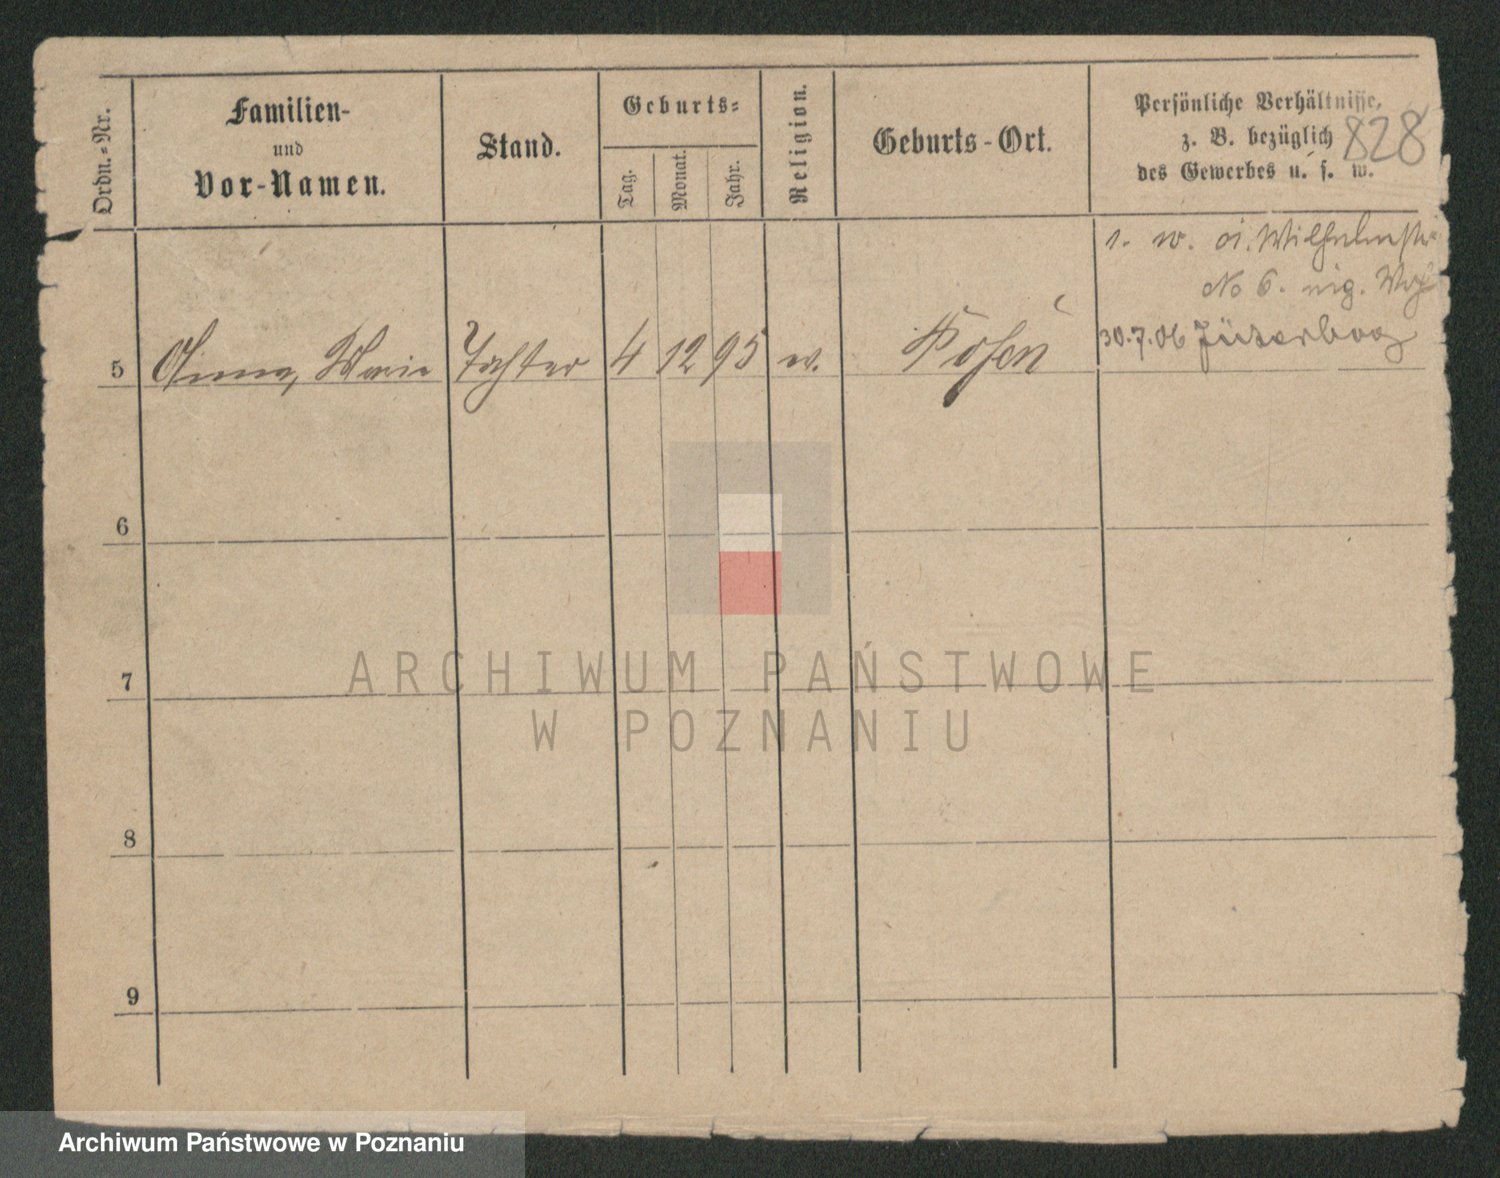 Ordn.-Nr.
Familien-
und
Vor-Namen.
Stand.
Geburts-
Tag.
Monat.
Jahr.
Religion.
Geburts-Ort.
Persönliche Verhältnisse,
z. B. bezüglich
des Gewerbes u. s. w.
828
1. w. Wilhelmstr.
No 6.
5 Anna, Marie Tochter 4 12 95 Posen 30.7.06 Jüterbog
6
7
8
9
ARCHIWUM PAŃSTWOWE
W POZNANIU
Archiwum Państwowe w Poznaniu